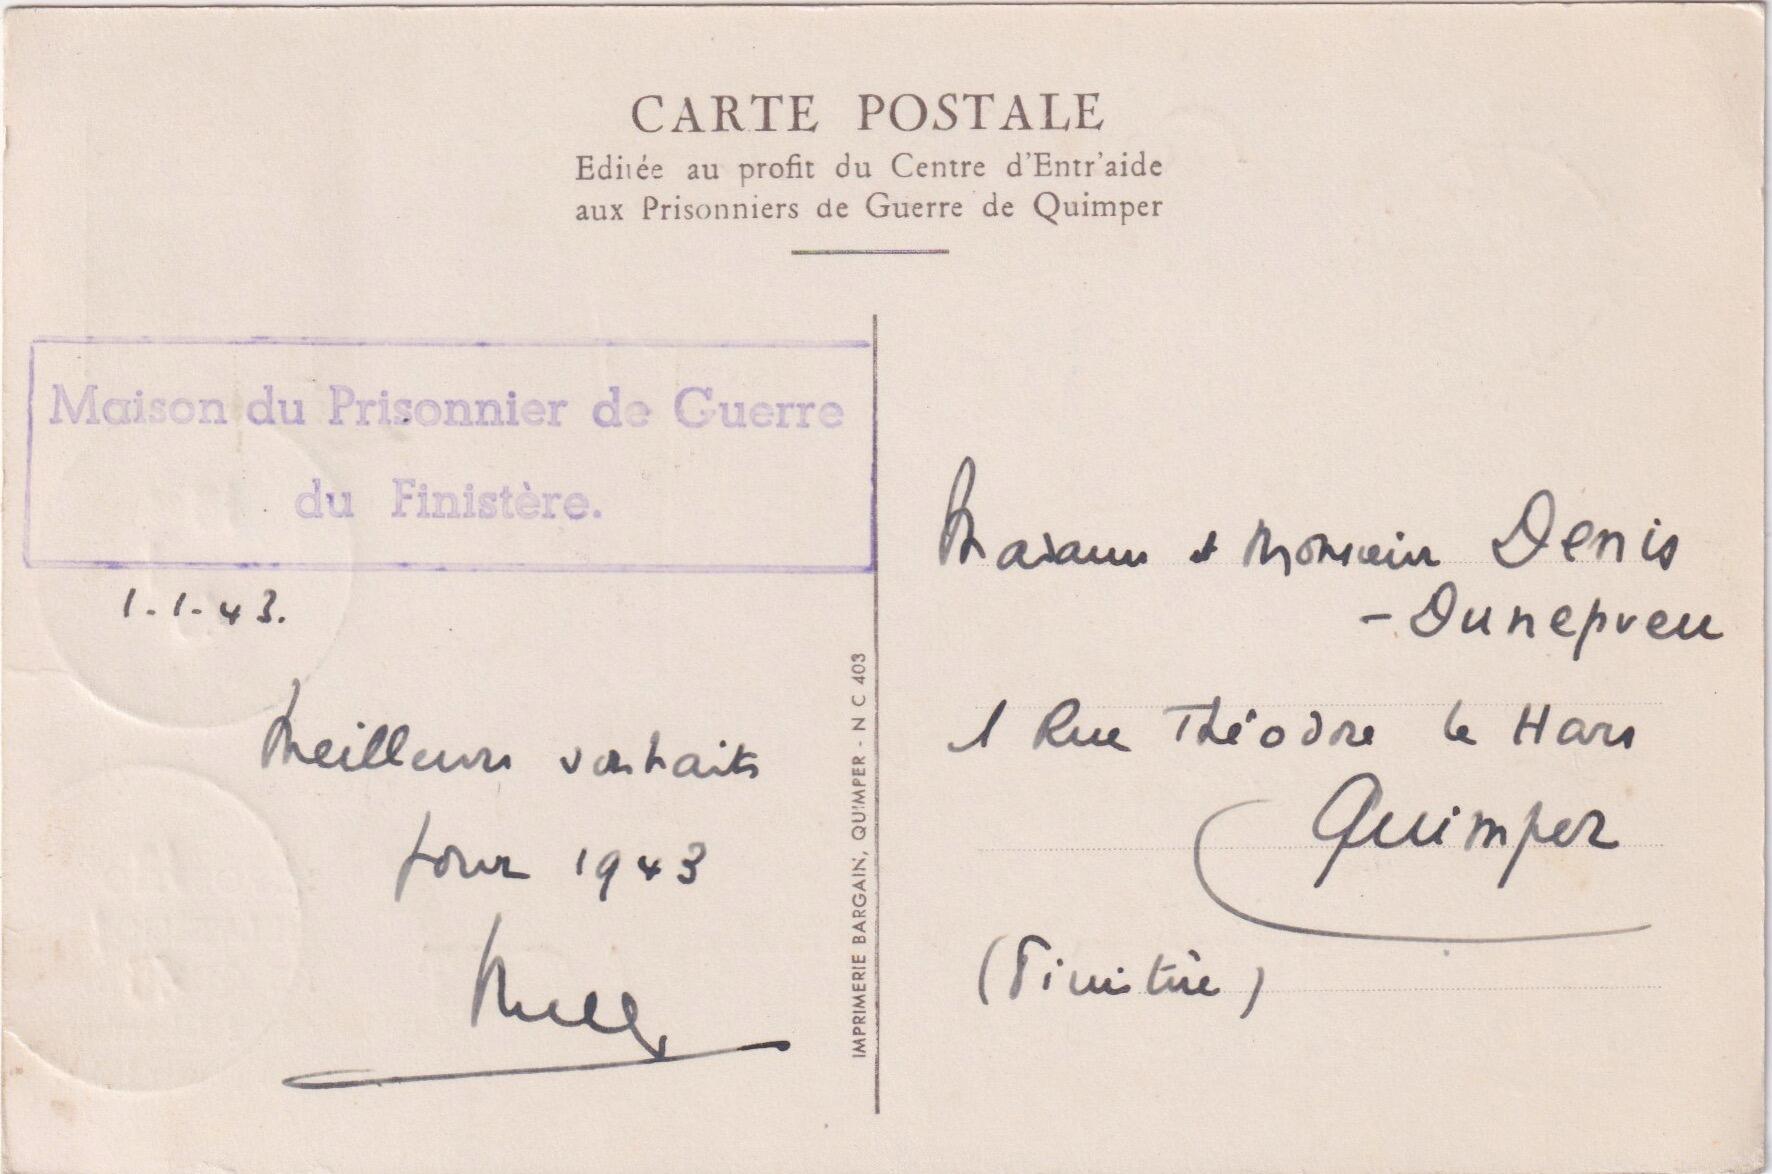 CARTE POSTALE
Editée au profit du Centre d'Entr'aide
aux Prisonniers de Guerre de Quimper
Maison du Prisonnier de Guerre
du Finistère.
1-1-43.
Meilleurs souhaits
pour 1943
IMPRIMERIE BARGAIN, QUIMPER - N C 403
Madame et Monsieur Denis
- Dunepveu
1 Rue Théodore le Hars
Quimper
(Finistère)